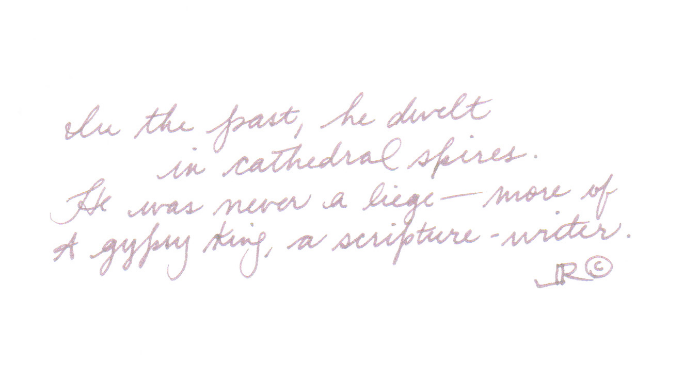 In the past, he dwelt
in cathedral spires.
He was never a liege—more of
A gypsy king, a scripture-writer.
JR©